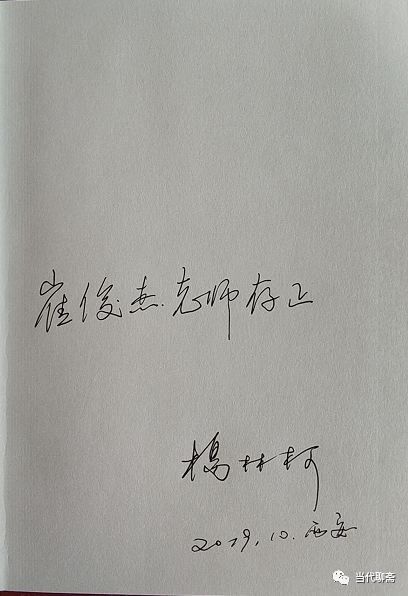 崔俊杰老师存正
杨林柯
2019.10.西安
当代聊斋